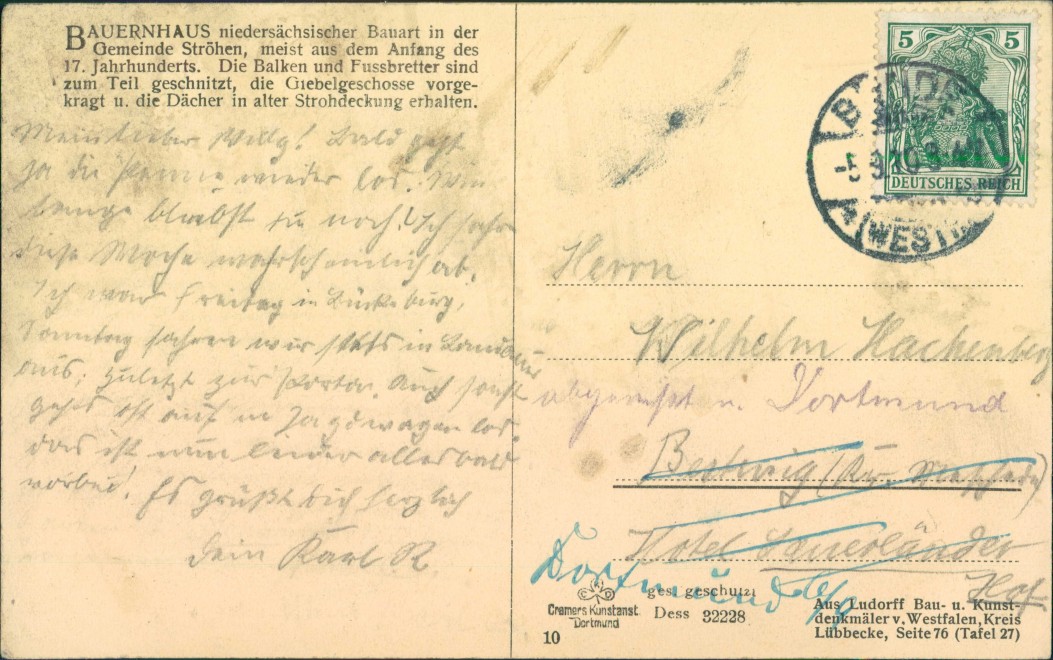 BAUERNHAUS niedersächsischer Bauart in der
Gemeinde Ströhen, meist aus dem Anfang des
17. Jahrhunderts. Die Balken und Fussbretter sind
zum Teil geschnitzt, die Giebelgeschosse vorge-
kragt u. die Dächer in alter Strohdeckung erhalten.
Mein lieber Willy! Bald geht
ja die Penne wieder los. Wie
lange bleibst du noch? Ich fahre
diese Woche wahrscheinlich ab.
Ich war Freitag in Bückeburg,
Sonntag fahren wir stets in Land
aus; zuletzt zur Porta. Auch sonst
gehts oft auf m Jagdwagen los.
das ist nun leider alles bald
vorbei! Es grüßt dich herzlich
dein Karl R.
5 5
DEUTSCHES REICH
BÜNDE
-5.9.10.8
(WESTF.)
Herrn
Wilhelm Hachenberg
abgereist n. Dortmund
Bestwig (Kr. Meschede)
Hotel Sauerländer
Hof
Dortmund
ges. geschützt
Cramers Kunstanst.
Dortmund
Dess 32228
10
Aus Ludorff Bau- u. Kunst-
denkmäler v. Westfalen, Kreis
Lübbecke, Seite 76 (Tafel 27)